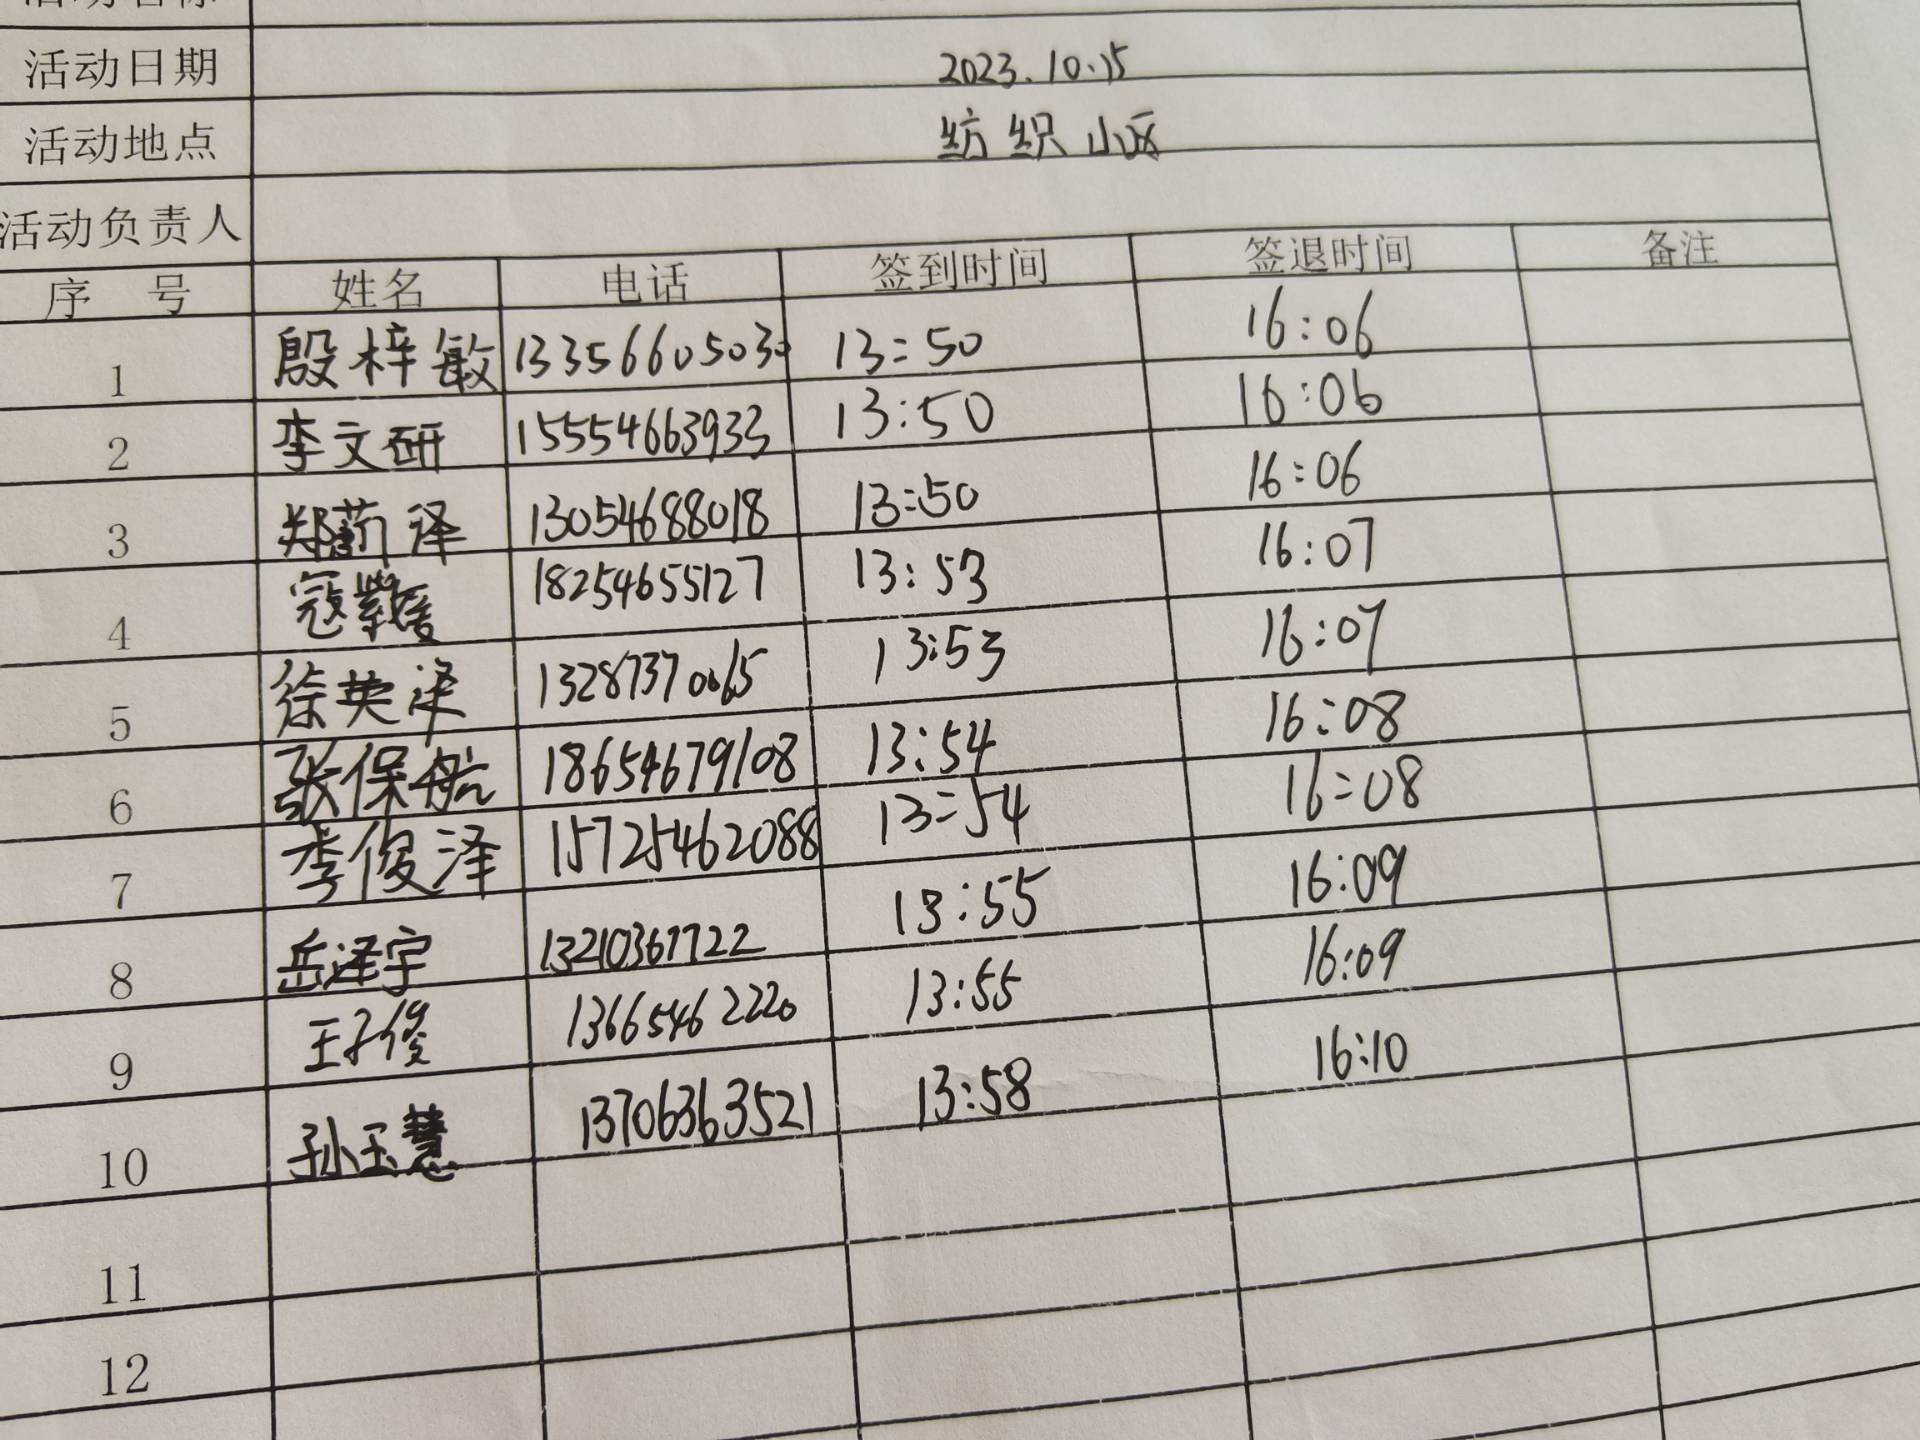 活动名称
活动日期 2023.10.15
活动地点 纺织小区
活动负责人
序 号 姓名 电话 签到时间 签退时间 备注
1 殷梓敏 13356605030 13:50 16:06
2 李文研 15554663933 13:50 16:06
3 郑蓊译 13054688018 13:50 16:06
4 寇紫媛 18254655127 13:53 16:07
5 徐英泽 13287370065 13:53 16:07
6 张保航 18654679108 13:54 16:08
7 李俊泽 15725462088 13:54 16:08
8 岳泽宇 13210367722 13:55 16:09
9 王子俊 13665462220 13:55 16:09
10 孙玉慧 13706363521 13:58 16:10
11
12